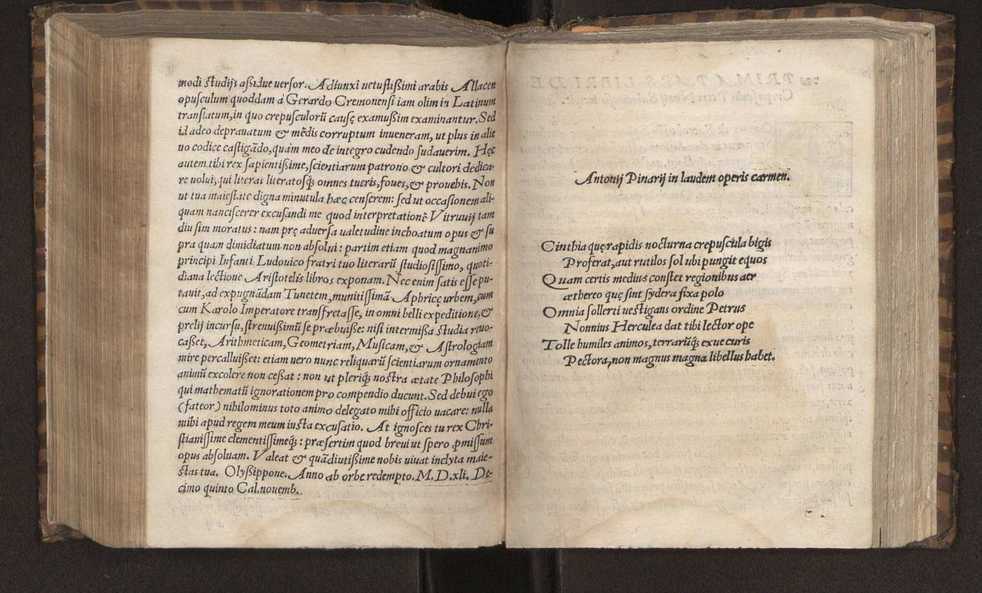 modi ſtudijs aßidue verſor. Adiunxi uetuſtißimi arabis Allacen
opuſculum quoddam à Gerardo Cremonenſi iam olim in Latinum
tranſlatum, in quo crepuſculorũ cauſę examußim examinantur. Sed
id adeo deprauatum & mẽdis corruptum inueneram, ut plus in alie
no codice caſtigãdo, quàm meo de integro cudendo ſudauerim. Hęc
autem tibi rex ſapientißime, ſcientiarum patrono & cultori dedica-
re uolui, qui literas literatosq́; omnes tueris, foues, & prouehis. Non
ut tua maieſtate digna minutula hæc cenſerem: ſed ut occaſionem ali-
quam nanciſcerer excuſandi me quod interpretationẽ Vitruuij tam
diu ſim moratus: nam prę aduerſa ualetudine inchoatum opus & ſu
pra quàm dimidiatum non abſolui: partim etiam quod magnanimo
principi Infanti Ludouico fratri tuo literarũ ſtudioſißimo, quoti-
diana lectione Ariſtotelis libros exponam. Nec enim ſatis eſſe pu-
tauit, ad expugnãdam Tunetem, munitißimã Aphricę urbem, cum
cum Karolo Imperatore tranſfretaſſe, in omni belli expeditione, &
prelij incurſu, ſtrenuißimũ ſe præbuiße: niſi intermißa ſtudia reuo-
caßet, Arithmeticam, Geometriam, Muſicam, & Aſtrologiam
mire percalluißet: etiam uero nunc reliquarũ ſcientiarum ornamento
animũ excolere non ceßat: non ut pleriq; noſtra ætate Philoſophi
qui mathematũ ignorationem pro compendio ducunt. Sed debui ego
(fateor) nihilominus toto animo delegato mihi officio uacare: nulla
mihi apud regem meum iuſta excuſatio. At ignoſces tu rex Chri-
ſtianißime clementißimeq́;: præſertim quod breui ut ſpero ꝓmiſſum
opus abſoluam. Valeat & quãdiutißime nobis uiuat inclyta maie-
ſtas tua. Olyßippone. Anno ab orbe redempto. M.D.xli. De
cimo quinto Cal. nouemb.
Antonij Pinarij in laudem operis carmen.
Cinthia quę rapidis nocturna crepuſcula bigis
Proferat, aut rutilos ſol ubi pungit equos
Quam certis medius conſtet regionibus aer
æthereo quę ſint ſydera fixa polo
Omnia ſollerti ueſtigans ordine Petrus
Nonnius Herculea dat tibi lector ope
Tolle humiles animos, terrarũq́; exue curis
Pectora, non magnus magna libellus habet.